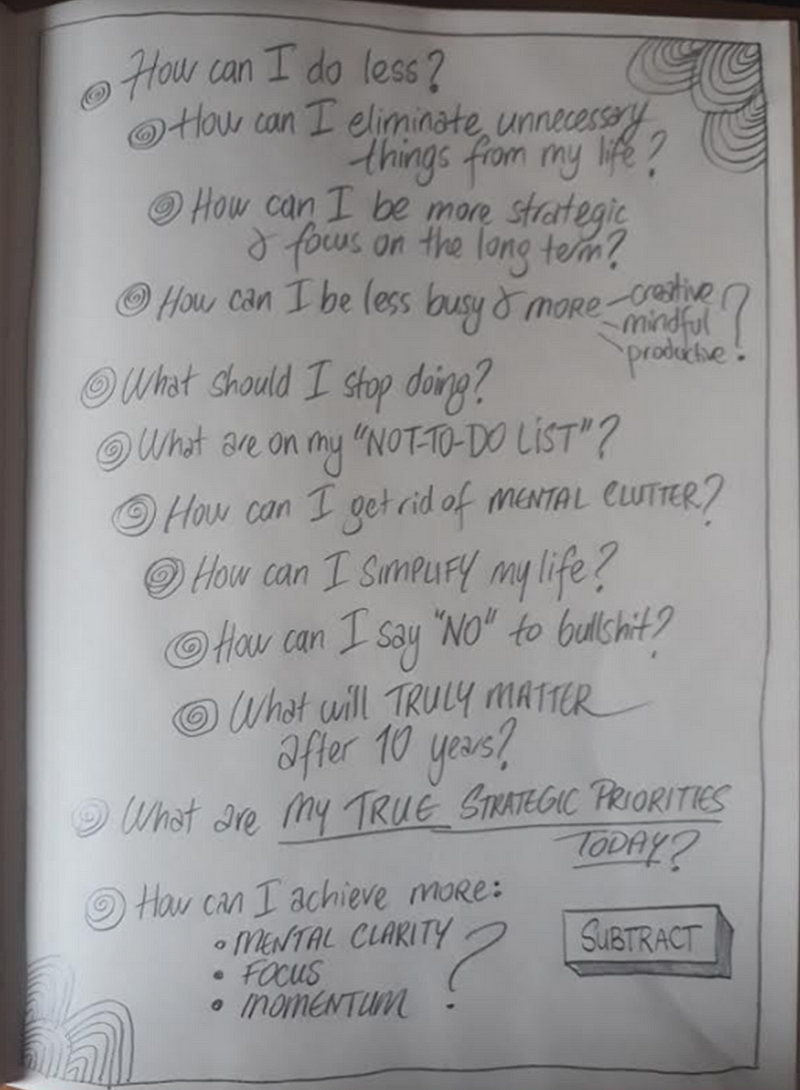 How can I do less?
How can I eliminate unnecessary
things from my life?
How can I be more strategic
& focus on the long term?
How can I be less busy & more creative
mindful
productive?
What should I stop doing?
What are on my "NOT-TO-DO LIST"?
How can I get rid of MENTAL CLUTTER?
How can I SIMPLIFY my life?
How can I say "NO" to bullshit?
What will TRULY MATTER
after 10 years?
What are MY TRUE STRATEGIC PRIORITIES
TODAY?
How can I achieve more:
• MENTAL CLARITY
• FOCUS
• MOMENTUM ?
SUBTRACT